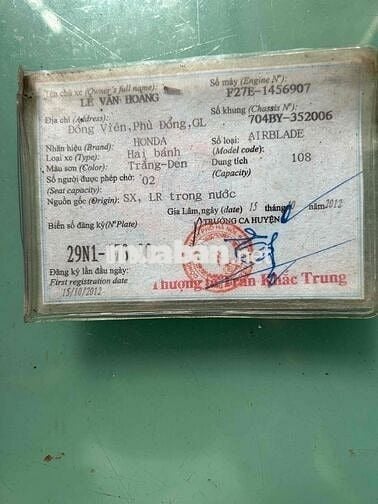 Tên chủ xe (Owner's full name): Số máy (Engine N°):
LÊ VĂN HOÀNG F27E-1456907
Địa chỉ (Address): Số khung (Chassis N°):
Đổng Viên, Phù Đổng, GL 704BY-352006
Nhãn hiệu (Brand): HONDA Số loại: AIRBLADE
Loại xe (Type): Hai bánh (Model code):
Màu sơn (Color): Trắng-Đen Dung tích 108
Số người được phép chở: 02 (Capacity)
(Seat capacity)
Nguồn gốc (Origin): SX, LR trong nước
Gia Lâm, ngày (date) 15 tháng 10 năm 2012
Biển số đăng ký (N°Plate) TRƯỞNG CA HUYỆN
29N1-
muaban.net
Đăng ký lần đầu ngày:
First registration date
15/10/2012
Thượng tá Trần Khắc Trung